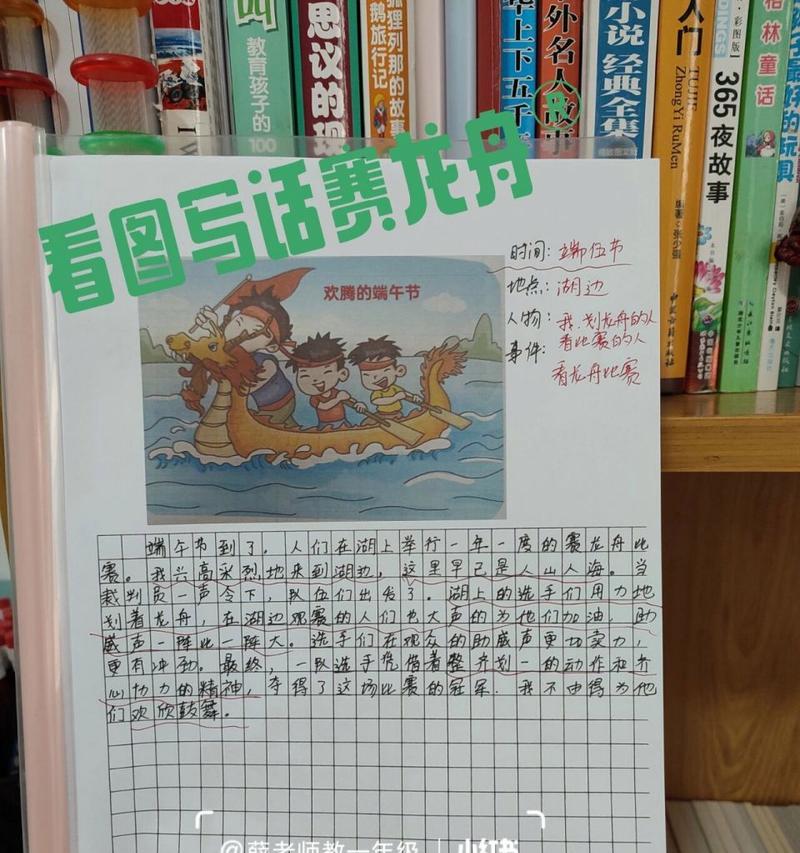 教育孩子的100
思议的现
狐狸列那的故事
鹅旅行记
上下五千
外名人故事
小说 经典全集
入门
TUJIE
ZhongYi RuMen
中医古籍出版社
彩图版
365夜故事
格林童话
最好的玩具
看图写话赛龙舟
欢腾的端午节
时间：端伍节
地点：湖边
人物：我、划龙舟的人
看比赛的人
事件：
看龙舟比赛
端午节到了。人们在湖上举行一年一度的赛龙舟比
赛。我兴高采烈地来到湖边，这里早已是人山人海。当
裁判员一声令下，队伍们出发了。湖上的选手们用力地
划着龙舟，在湖边观赛的人们也大声的为他们加油，助
威声一阵比一阵大。选手们在观众的助威声更加卖力，
更有冲劲。最终，一队选手凭借着整齐划一的动作和齐
心协力的精神，夺得了这场比赛的冠军。我不由得为他
们欢欣鼓舞。
@薛老师教一年级
小红书